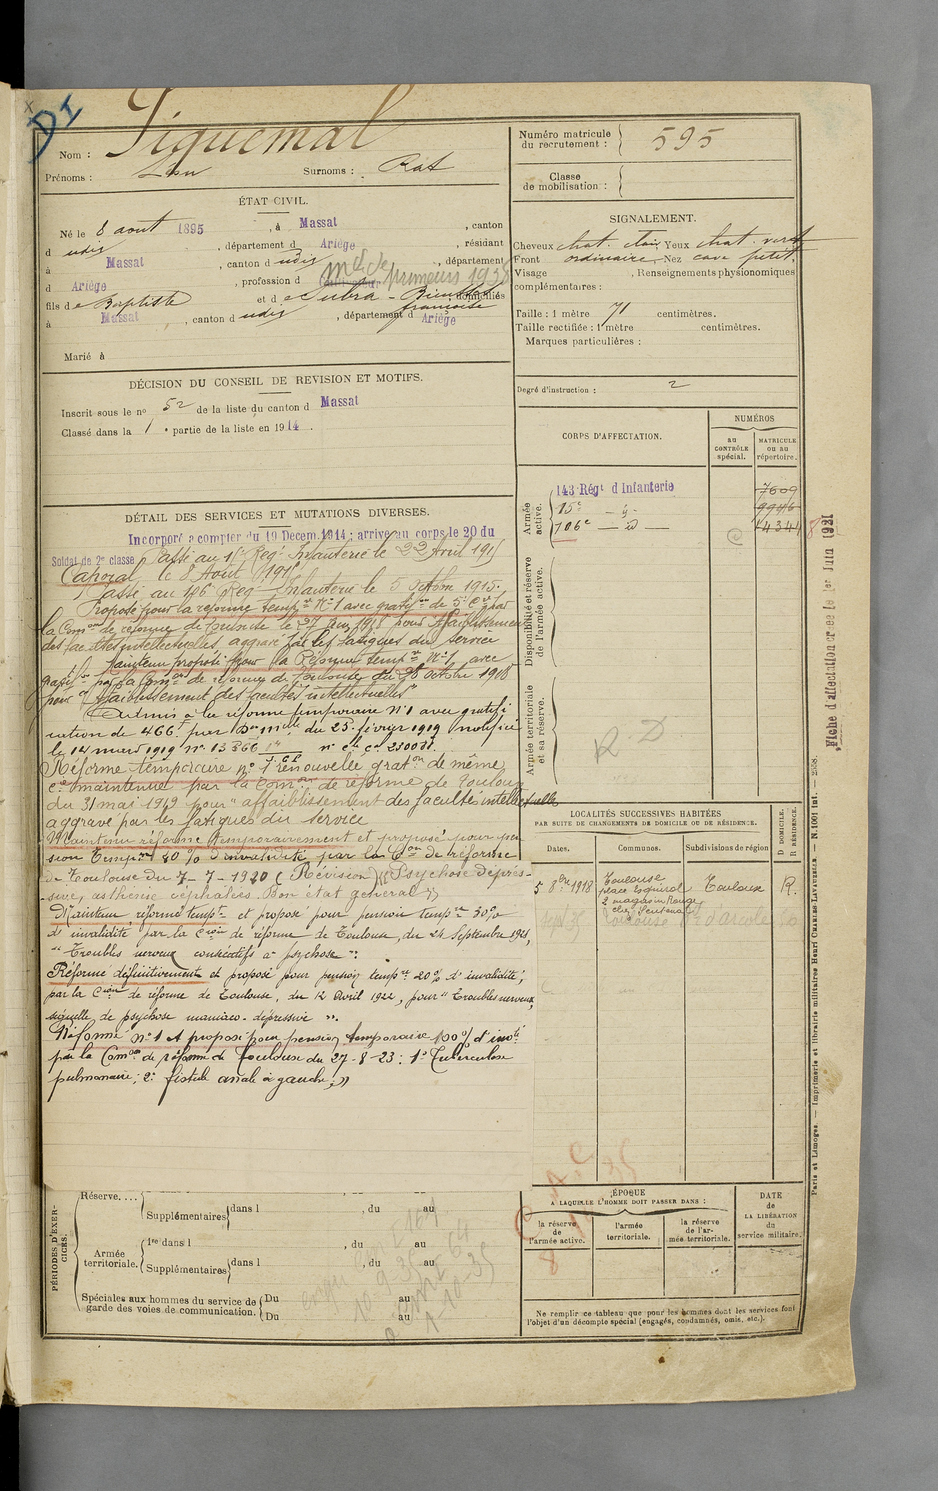 DI
Nom : Piquemal
Prénoms : Léon Surnoms : Rat
Numéro matricule du recrutement : 595
Classe de mobilisation :
ÉTAT CIVIL.
Né le 8 aout 1895, à Massat, canton
d udis, département d Ariège, résidant
à Massat, canton d udis, département
d Ariège, profession d md de primeurs 1935
fils de Baptiste et de Subra - Françoise, domiciliés
à Massat, canton d udis, département d Ariège
Marié à
SIGNALEMENT.
Cheveux chat. clair Yeux chat. vert
Front ordinaire Nez cave petit.
Visage , Renseignements physionomiques
complémentaires :
Taille : 1 mètre 71 centimètres.
Taille rectifiée : 1 mètre centimètres.
Marques particulières :
Degré d'instruction : 2
DÉCISION DU CONSEIL DE REVISION ET MOTIFS.
Inscrit sous le no 52 de la liste du canton d Massat
Classé dans la 1e partie de la liste en 1914.
DÉTAIL DES SERVICES ET MUTATIONS DIVERSES.
Incorporé a compter du 19 Decem. 1914 ; arrivé au corps le 20 du
Soldat de 2e classe Passé au 15e Reg. Infanterie le 22 Avril 1915
Caporal le 8 Aout 1915
Passé au 106e Reg Infanterie le 5 Octobre 1915.
Proposé pour la réforme tempre No 1 avec gratifon de 5e Cie par
la Comon de réforme de Toulouse le 27 1918 pour affaiblissement
des facultés intellectuelles, aggravé par les fatigues du service
Maintenu proposé pour la Réforme tempre No 1 avec
par la Comon de réforme de Toulouse du 28 octobre 1918
pour "affaiblissement des facultés intellectuelles"
Admis à la réforme temporaire No 1 avec gratifi
cation de 466f par Don mlle du 25 février 1919 notifiée
le 14 mars 1919 no 13866
Réforme temporaire no 1 renouvelée graton de même
cie maintenue par la Comon de réforme de Toulouse
du 31 mai 1919 pour "affaiblissement des facultés intellectuelles
aggravé par les fatigues du service
Maintenu réforme temporairement et proposé pour pen
sion tempre 80 % d'invalidité par la Con de réforme
de Toulouse du 7-7-1920 (Révision) "Psychose dépres-
sive, asthénie céphalées. Bon état général"
Maintenu réformé tempre et proposé pour pension tempre 30%
d'invalidité par la Cion de réforme de Toulouse, du 24 Septembre 1921,
"Troubles nerveux consécutifs à psychose".
Réformé définitivement et proposé pour pension tempre 20% d'invalidité,
par la Cion de réforme de Toulouse, du 12 Avril 1922, pour "Troubles nerveux,
séquelle de psychose maniaco-dépressive".
Réformé no 1 et proposé pour pension temporaire 100% d'invté
par la Comon de réforme de Toulouse du 27-8-23 : 1o Tuberculose
pulmonaire ; 2o fistule anale à gauche."
CORPS D'AFFECTATION.
NUMÉROS
au CONTRÔLE spécial.
MATRICULE ou au répertoire.
Armée active.
143 Régt d'Infanterie 7609
15e — d° — 9946
106e — d° — 14344
Disponibilité et réserve de l'armée active.
Armée territoriale et sa réserve.
R.D
Fiche d'affectation créée le 1er Juin 1921
LOCALITÉS SUCCESSIVES HABITÉES
PAR SUITE DE CHANGEMENTS DE DOMICILE OU DE RÉSIDENCE.
Dates. Communes. Subdivisions de région D DOMICILE. R RÉSIDENCE.
5 8bre 1918 Toulouse place Esquirol Toulouse R.
Toulouse d'arcole
Paris et Limoges. — Imprimerie et librairie militaires Henri CHARLES-LAVAUZELLE. — N. 1001 int. — 2358.
PÉRIODES D'EXERCICES.
Réserve.... , du au
Supplémentaires dans l , du au
Armée territoriale. 1re dans l , du au
Supplémentaires dans l , du au
Spéciales aux hommes du service de garde des voies de communication. Du au
Du au
ÉPOQUE
A LAQUELLE L'HOMME DOIT PASSER DANS :
la réserve de l'armée active.
l'armée territoriale.
la réserve de l'armée territoriale.
DATE de LA LIBÉRATION du service militaire.
Ne remplir ce tableau que pour les hommes dont les services font
l'objet d'un décompte spécial (engagés, condamnés, omis, etc.).